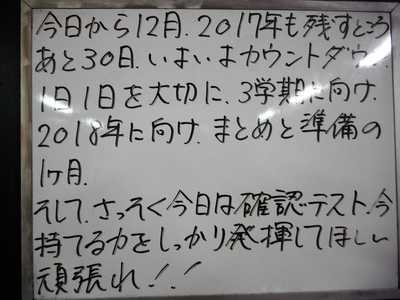 今日から12月.2017年も残すところ
あと30日.いよいよカウントダウン.
1日1日を大切に、3学期に向け.
2018年に向け.まとめと準備の
1ヶ月.
そして.さっそく今日は確認テスト.今
持てる力をしっかり発揮してほしい
頑張れ!!